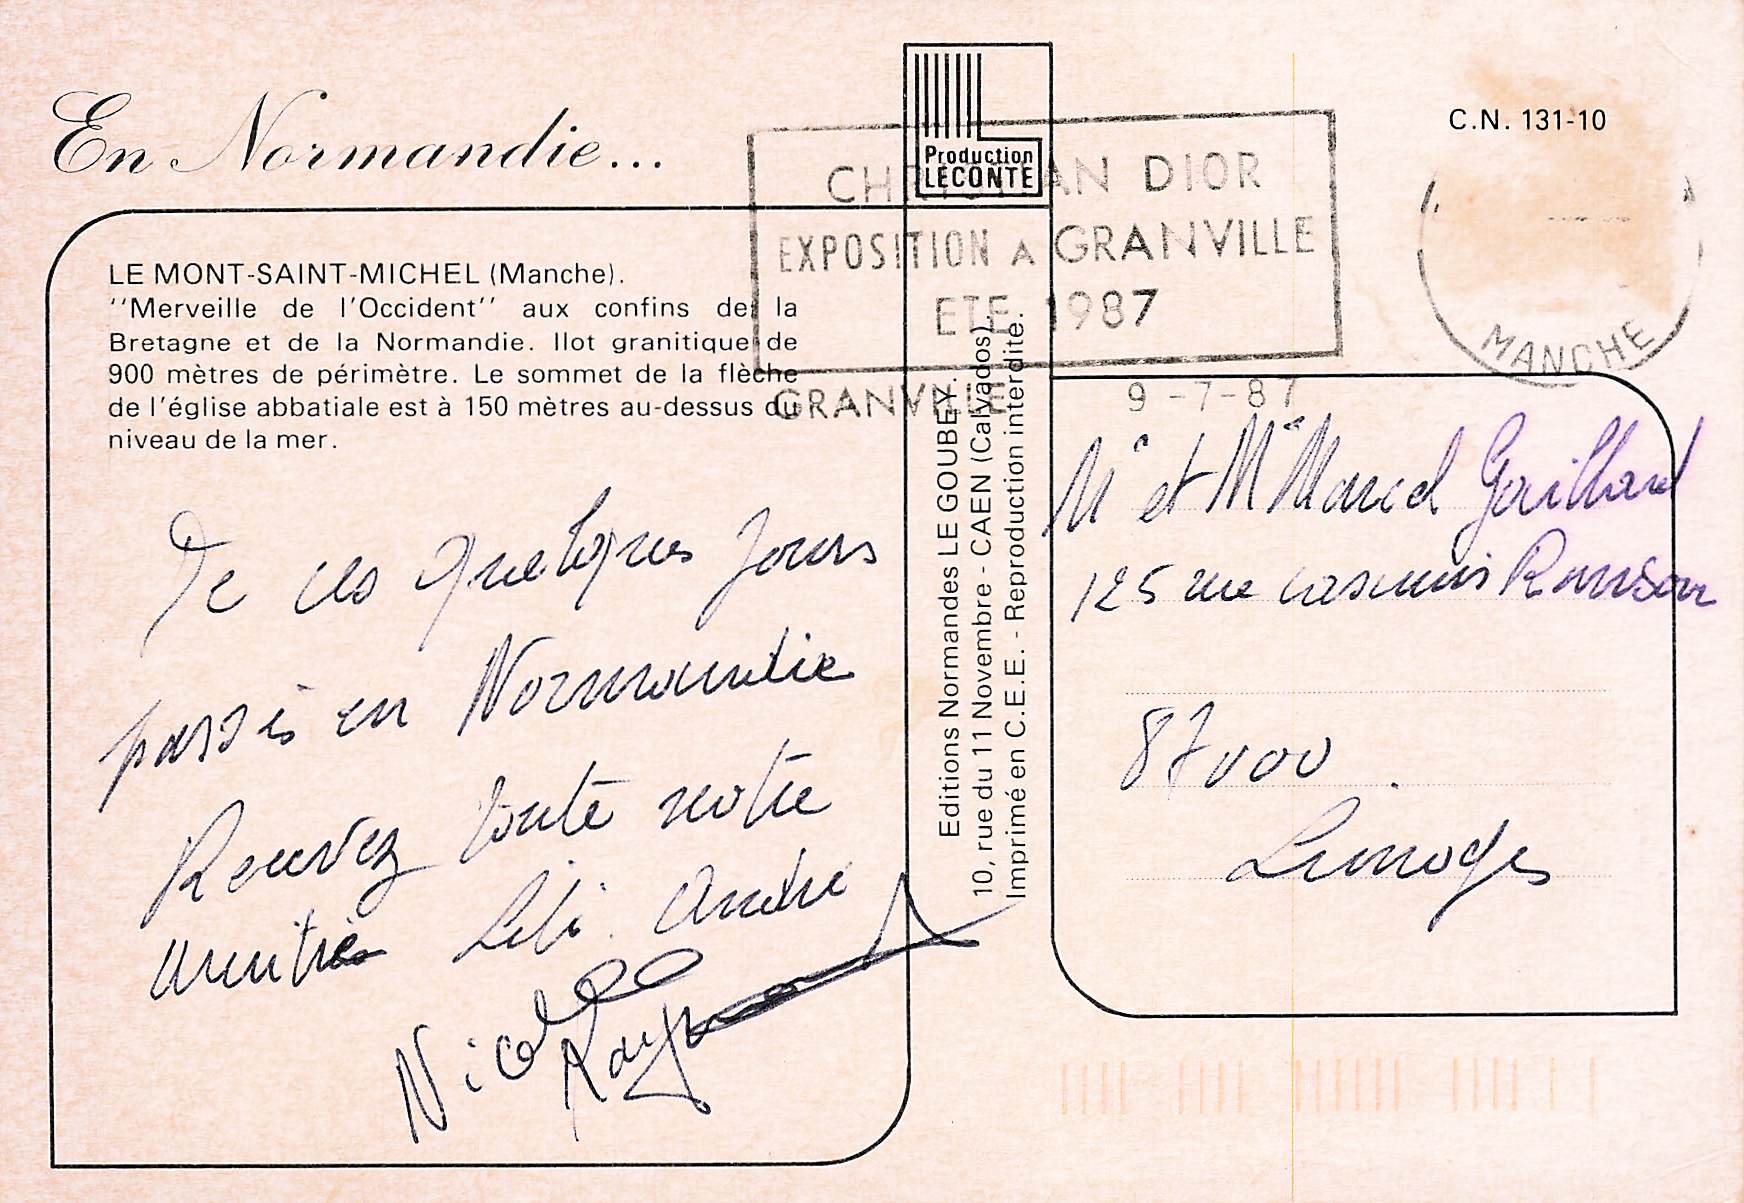 En Normandie...
C.N. 131-10
Production
LECONTE
CHRISTIAN DIOR
EXPOSITION A GRANVILLE
ETE 1987
GRANVILLE
9-7-87
MANCHE
LE MONT-SAINT-MICHEL (Manche).
''Merveille de l'Occident'' aux confins de la
Bretagne et de la Normandie. Ilot granitique de
900 mètres de périmètre. Le sommet de la flèche
de l'église abbatiale est à 150 mètres au-dessus du
niveau de la mer.
De ces quelques jours
passés en Normandie
Recevez toute notre
amitié Lili. André
Nicole
Raymond
Editions Normandes LE GOUBEY.
10, rue du 11 Novembre - CAEN (Calvados).
Imprimé en C.E.E. - Reproduction interdite.
Mr et Me Marcel Gaillard
125 rue casimir Ranson
87000
Limoges